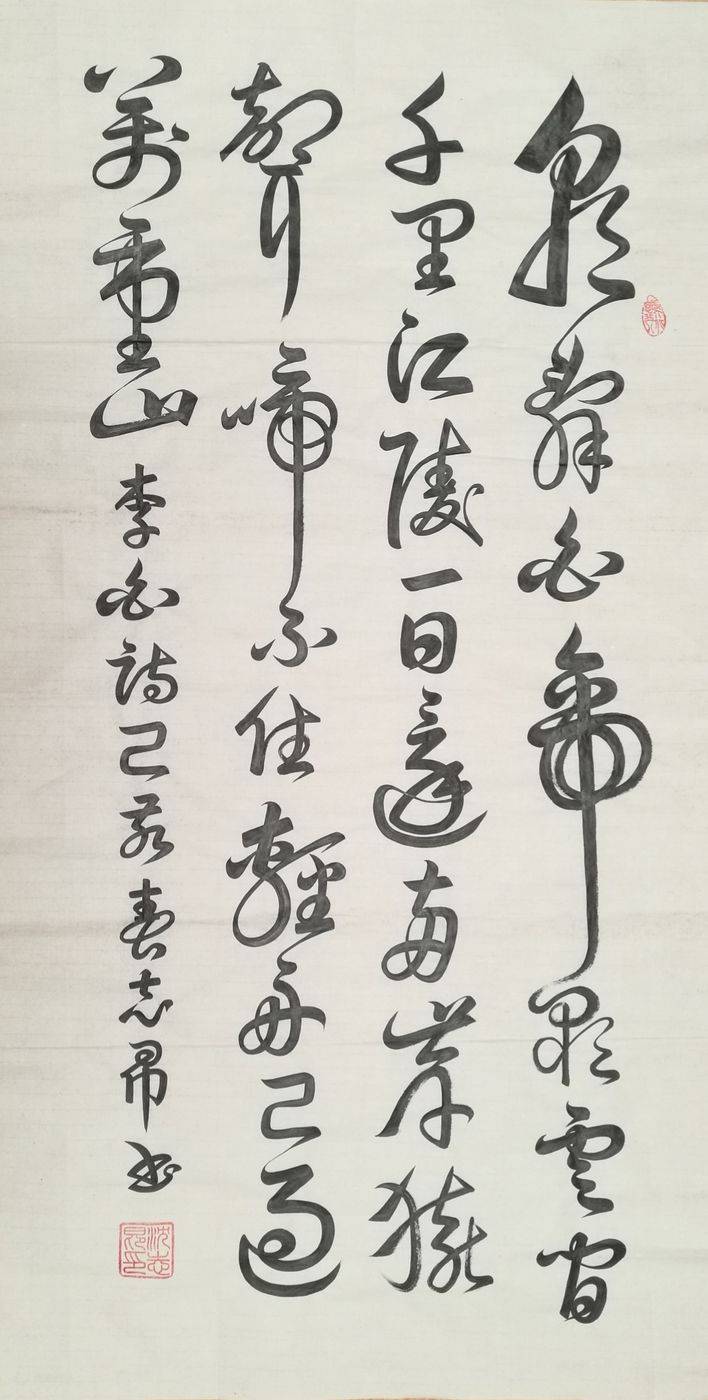 朝辭白帝彩雲間
千里江陵一日還兩岸猿
聲啼不住輕舟已過
萬重山 李白詩己亥春志昂書
沈志昂印